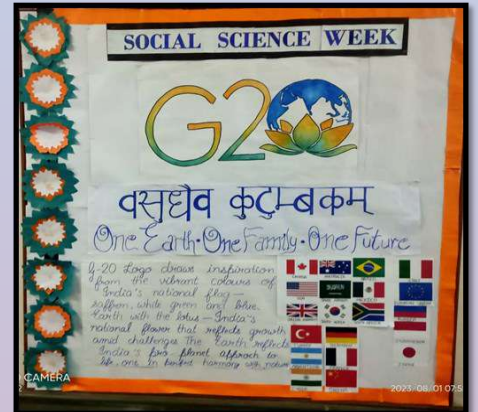 SOCIAL SCIENCE WEEK
G20
वसुधैव कुटुम्बकम्
One Earth · One Family · One Future
G-20 Logo draws inspiration
from the vibrant colours of
India's national flag —
saffron, white green and blue.
Earth with the lotus — India's
national flower that reflects growth
amid challenges The Earth reflects
India's pro-planet approach to
life, one in perfect harmony with nature
CAMERA
2023/08/01 07:5